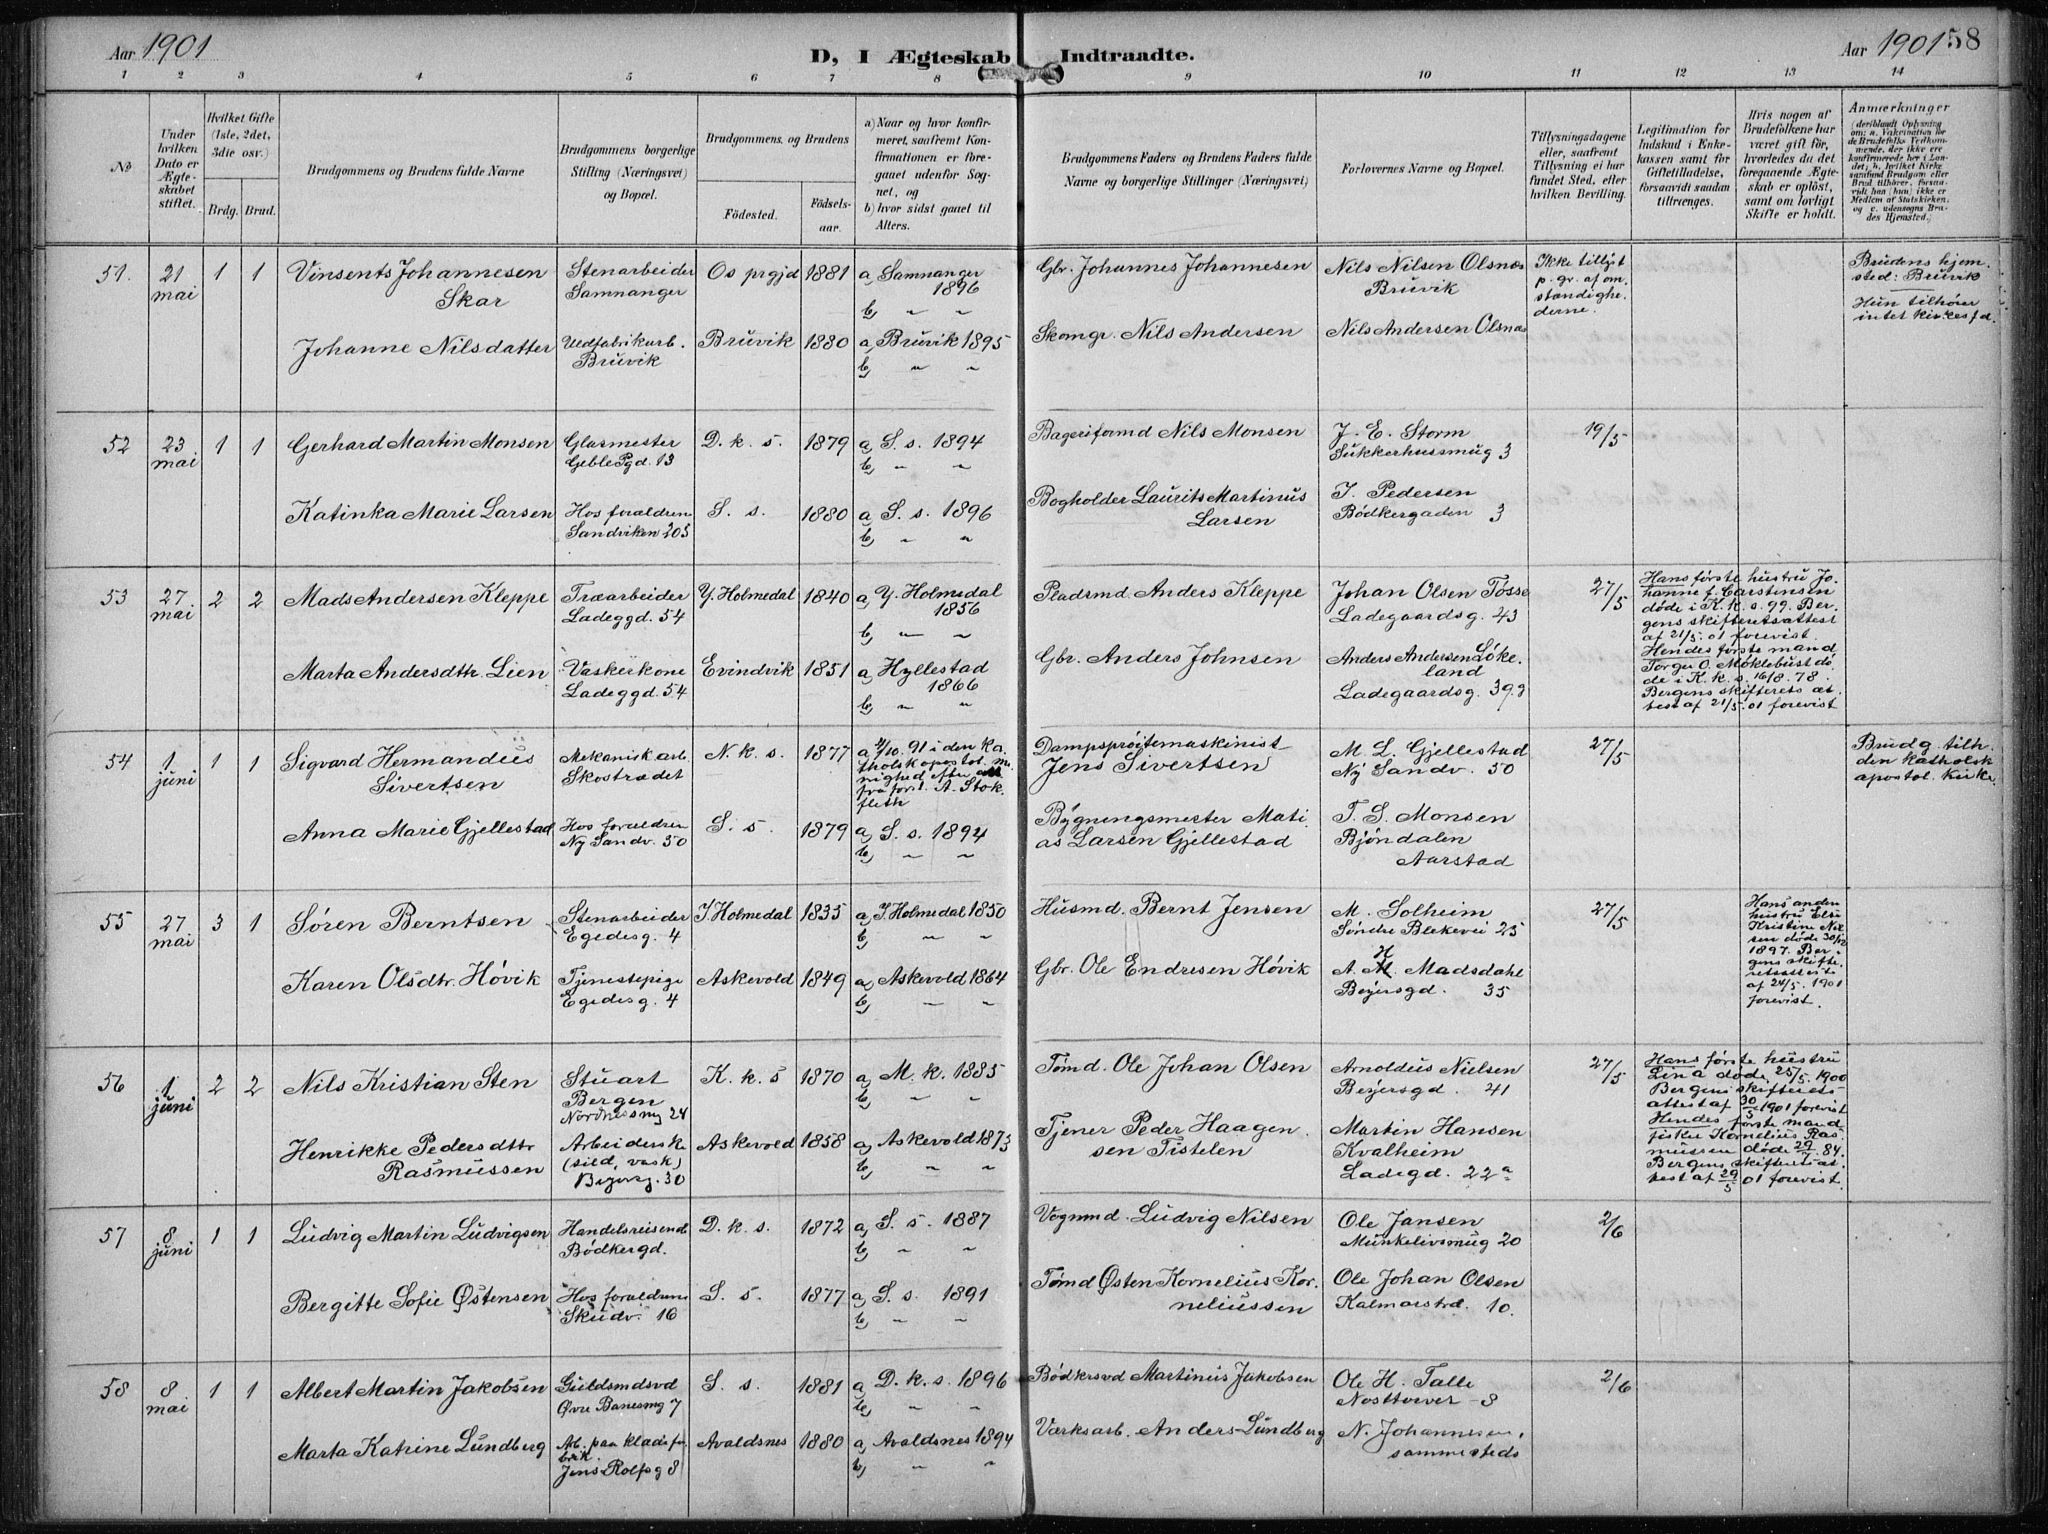 Aar 1901
D, I Ægteskab Indtraadte.
Aar 1901
58
1 2 3 4 5 6 7 8 9 10 11 12 13 14
No
Under hvilken Dato er Ægteskabet stiftet.
Hvilket Gifte (1ste, 2det, 3die osv.)
Brdg. Brud.
Brudgommens og Brudens fulde Navne
Brudgommens borgerlige Stilling (Næringsvei) og Bopæl.
Brudgommens og Brudens
Födested.
Födsels-aar.
a) Naar og hvor konfirmeret, saafremt Konfirmationen er foregaaet udenfor Sognet, og
b) hvor sidst gaaet til Alters.
Brudgommens Faders og Brudens Faders fulde Navne og borgerlige Stillinger (Næringsvei)
Forlovernes Navne og Bopæl.
Tillysningsdagene eller, saafremt Tillysning ei har fundet Sted, efter hvilken Bevilling.
Legitimation for Indskud i Enkekassen samt for Giftetilladelse, forsaavidt saadan tiltrænges.
Hvis nogen af Brudefolkene har været gift för, hvorledes da det foregaaende Ægteskab er oplöst, samt om lovligt Skifte er holdt.
Anmærkninger
(deriblandt Oplysning om: a. Vakcination for de Brudefolks Vedkommende, der ikke ere konfirmerede her i Landet; b. hvilket Kirkesamfund Brudgom eller Brud tilhörer, forsaavidt han (hun) ikke er Medlem af Statskirken, og c. udensogns Brudes Hjemsted.)
51. 21 mai 1 1
Vinsents Johannesen Skar
Stenarbeider Samnanger
Os prgjd 1881
a, Samnanger 1896
b, " "
Gbr. Johannes Johannesen
Nils Nilsen Olsnes Bruvik
Ikke tillyst p. gr. af omstændighederne.
Brudens hjemsted: Bruvik
Hun tilhører intet kirkesfd.
Johanne Nilsdatter
Uldfabrikarb. Bruvik
Bruvik 1880
a, Bruvik 1895
b, " "
Skomgr. Nils Andersen
Nils Andersen Olsnes
52 23 mai 1 1
Gerhard Martin Monsen
Glasmester Geble Pgd. 13
D. k. s. 1879
a, S. s. 1894
b, " "
Bageriformd Nils Monsen
J. E. Storm Sukkerhussmug 3
19/5
Katinka Marie Larsen
Hos forældren Sandviken 203
S. s. 1880
a, S. s. 1896
b, " "
Bogholder Laurits Martinus Larsen
J. Pedersen Bödkergaden 3
53 27 mai 2 2
Mads Andersen Kleppe
Træarbeider Ladeggd. 54
Y. Holmedal 1840
a, Y. Holmedal 1856
b, " "
Pladsmd Anders Kleppe
Johan Olsen Tøsse Ladegaardsg. 43
27/5
Hans første hustru Johanne f. Carstensen døde i K. k. s. 99. Bergens skifteretsattest af 21/5. 01 forevist.
Hendes første mand Torger O. Møklebust døde i K. k. s. 16/8. 78. Bergens skifterets attest af 21/5. 01 forevist
Marta Andersdtr. Lien
Vaskerkone Ladeggd. 54
Evindvik 1851
a, Hyllestad 1866
b, " "
Gbr. Anders Johnsen
Anders Andersen Løkeland Ladegaardsg. 39
54 1 juni 1 1
Sigvard Hermandus Sivertsen
Mekanisk arb. Skostrædet
N. k. s. 1877
a, 4/10. 91 i den katholsk apostol. menighed efter att fra forst. A. Stokfleth
Dampsprøitemaskinist Jens Sivertsen
M. L. Gjellestad Ny Sandv. 50
27/5
Brudg. tilh. den katholsk apostol. kirke
Anna Marie Gjellestad
Hos forældren Ny Sandv. 50
S. s. 1879
a, S. s. 1894
b, " "
Bygningsmester Matias Larsen Gjellestad
T. S. Monsen Bjöndalen Aarstad
55 27 mai 3 1
Søren Berntsen
Stenarbeider Egedesg. 4
Y. Holmedal 1835
a, Y. Holmedal 1850
b, " "
Husmd. Bernt Jensen
M. Solheim Søndre Blekevei 25
27/5
Hans anden hustru Else Kristine Nilsen døde 30/12 1897. Bergens skifteretsattest af 24/5. 1901 forevist.
Karen Olsdtr. Høvik
Tjenestepige Egedesg. 4
Askevold 1849
a, Askevold 1864
b, " "
Gbr. Ole Endresen Høvik
A. H. Madsdahl Beyersgd. 35
56 1 juni 2 2
Nils Kristian Sten
Stuart Bergen Nordnessmg 24
K. k. s 1870
a, M. k. 1885
b, " "
Tømd. Ole Johan Olsen
Arnoldus Nielsen Beyersgd. 41
27/5
Hans første hustru Lina døde 25/5. 1900 Bergens skifteretsattest af 30/5 1901 forevist
Hendes første mand fisker Kornelius Rasmussen døde 29/7. 84. Bergens skifterets attest af 29/5 01 forevist.
Henrikke Pedersdttr Rasmussen
Arbeidersk (sild, vask) Beyersg. 30
Askevold 1858
a, Askevold 1873
b, " "
Tjener Peder Haagensen Tistelen
Martin Hansen Kvalheim Ladegd. 22a
57 8 juni 1 1
Ludvig Martin Ludvigsen
Handelsreisende Bødkergd.
D. k. s. 1872
a, S. s. 1887
b, " "
Vognmd. Ludvig Nilsen
Ole Jansen Munkelivsmug 20
2/6
Bergitte Sofie Østensen
Hos forældrene Skudv. 16
S. s. 1877
a, S. s. 1891
b, " "
Tømd Østen Kornelius Korneliussen
Ole Johan Olsen Kalmarstrd. 10.
58 8 mai 1 1
Albert Martin Jakobsen
Guldsmdsvd Øvre Banesmg 7
S. s. 1881
a, D. k. s. 1896
b, " "
Bødkersvd Martinus Jakobsen
Ole H. Talle Nosttorvet 8
2/6
Marta Katrine Lundberg
Arb. paa klædsfabrik. Jens Rolfsg 8
Avaldsnes 1880
a, Avaldsnes 1894
b, " "
Værksarb. Anders Lundberg
N. Johannesen, sammesteds